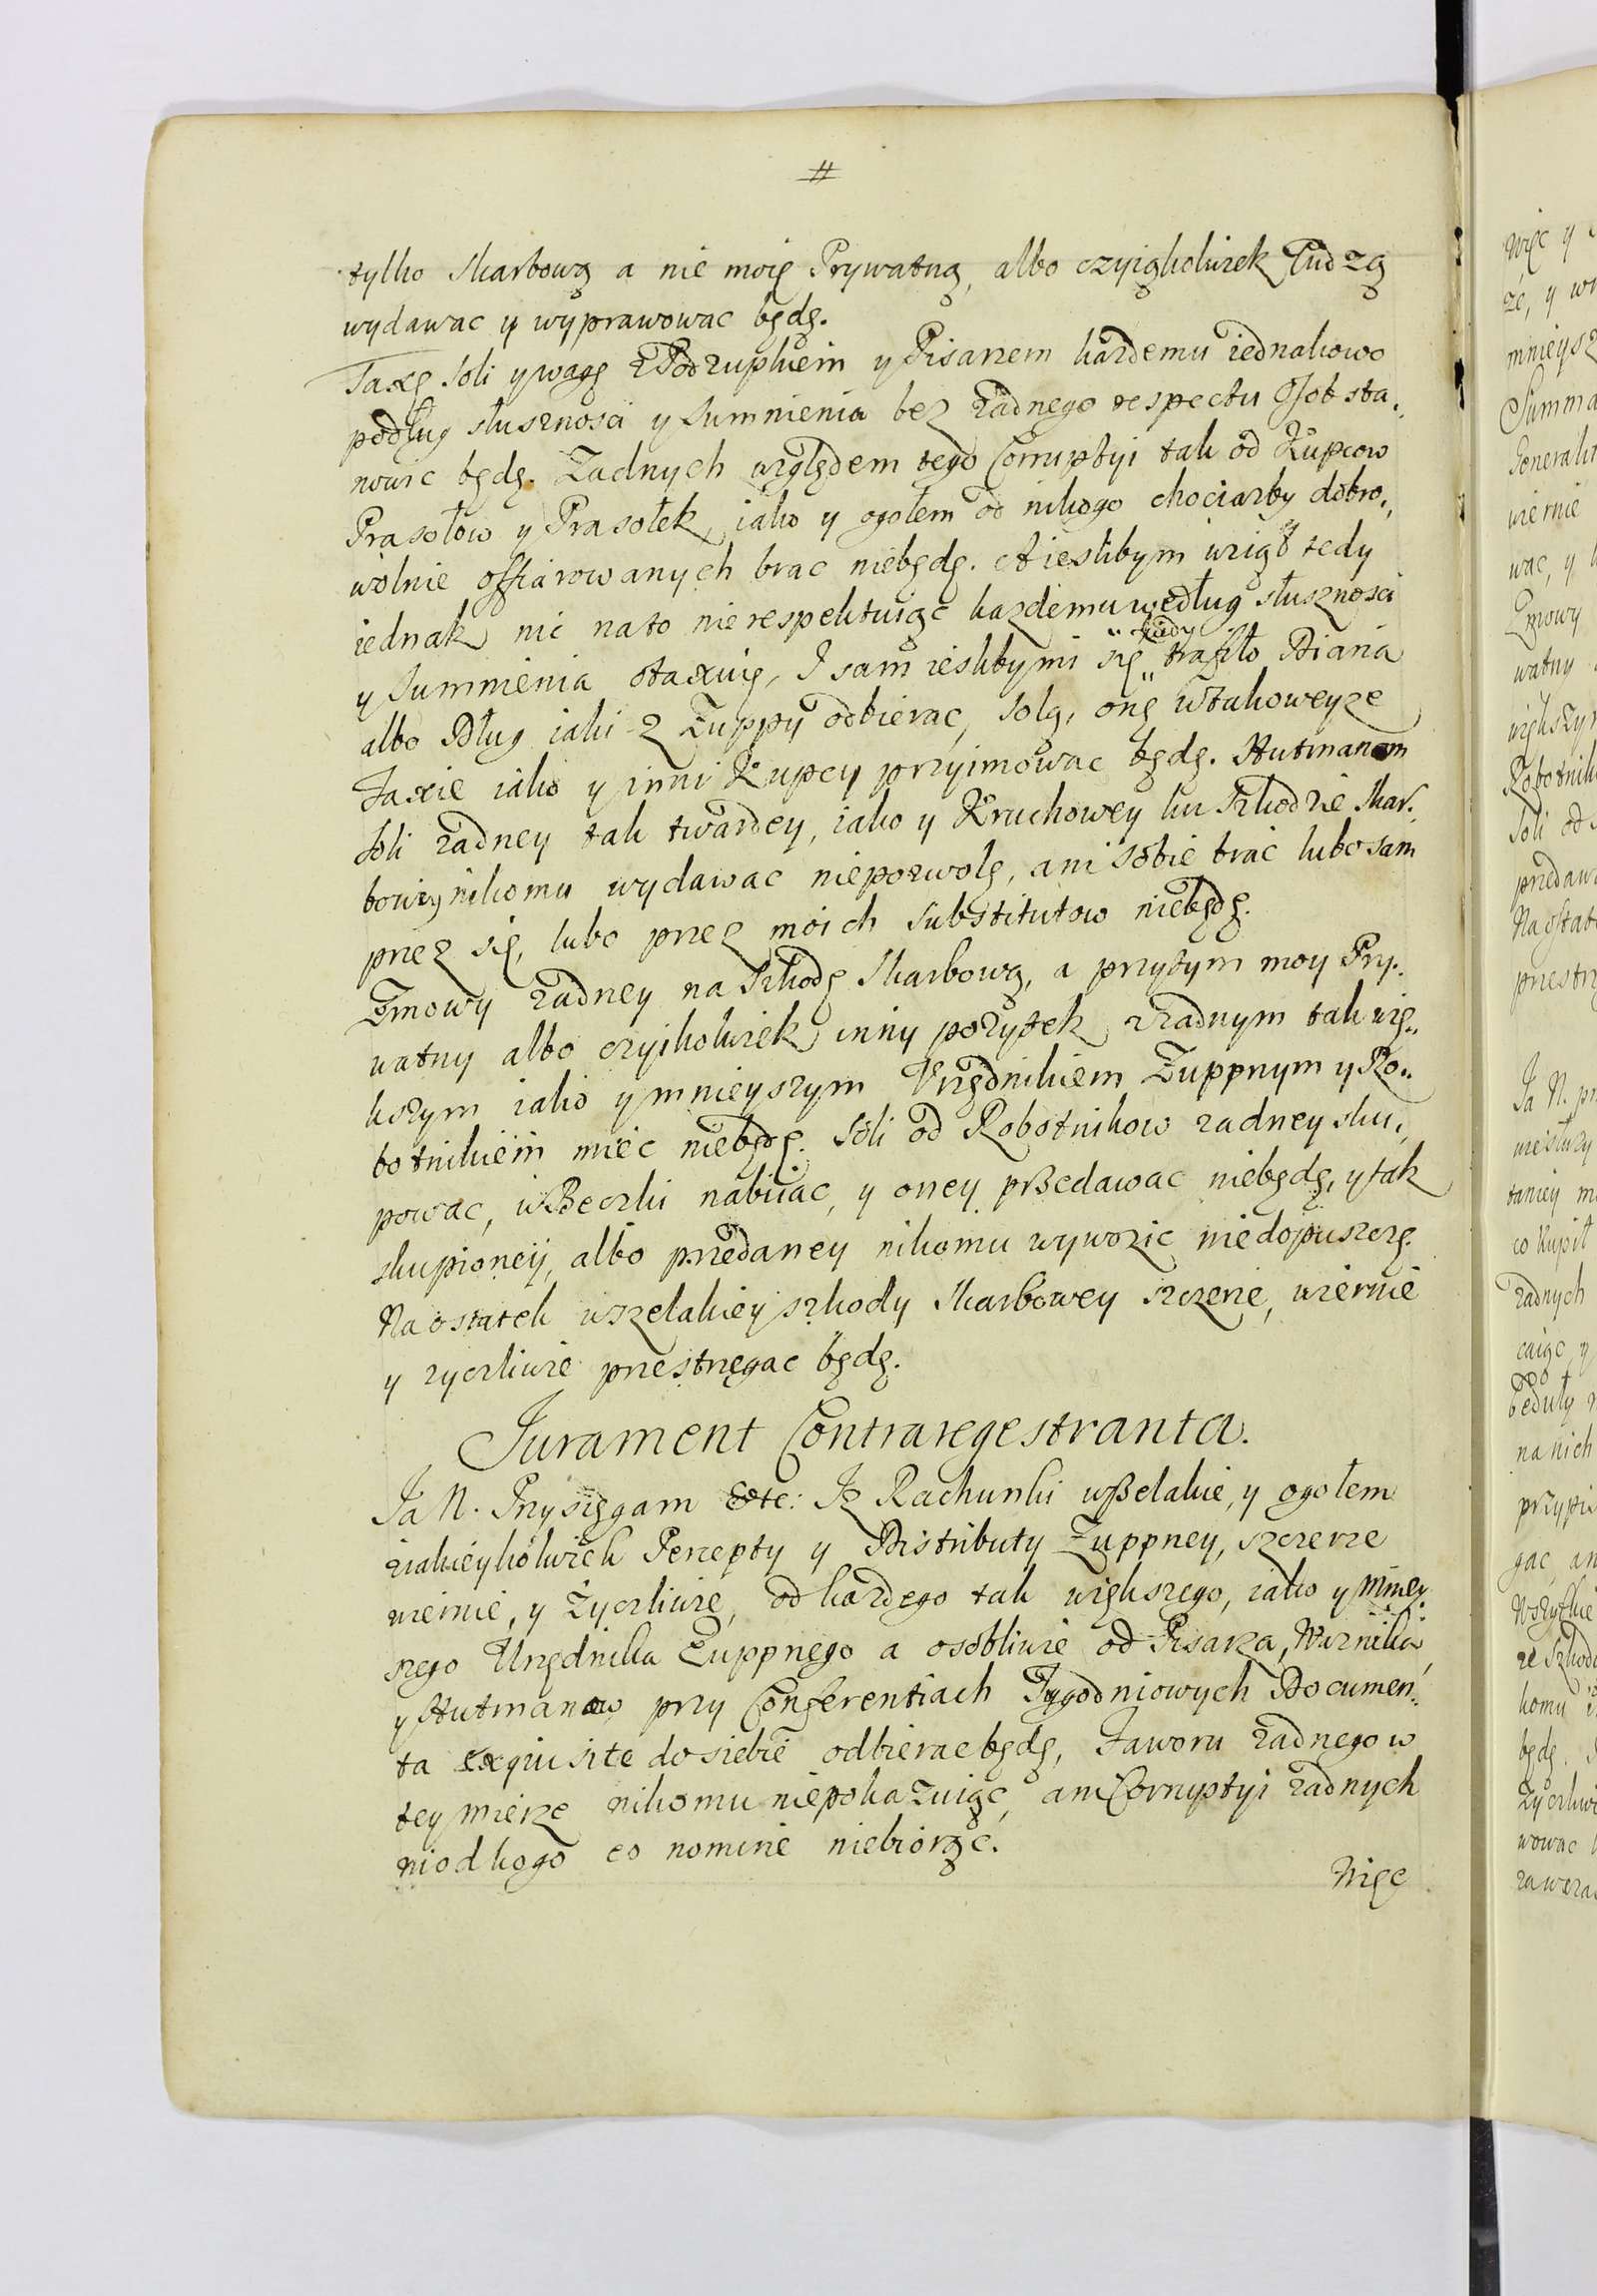 #
tylko skarbową a nie moię Prywatną, albo czyiąkolwiek Cudzą
wydawac y wyprawowac będę.
Taxę soli y wagę z Podzupkiem y Pisarzem kazdemu iednakowo
podług słusznosci y sumnienia bez zadnego respectu Osob sta„
nowic będę. Zadnych względem tego Corruptyi tak od Kupcow
Prasołow y Prasołek, iako y ogołem od nikogo chociazby dobro„
wolnie offiarowanych brac niebędę. A iesłibym wziął tedy
iednak nic nato nierespektuiąc kazdemu według słusznosci
y sumnienia otaxuię, I sam iesłibymi się "kiedy" trafiło Piania
albo Dług iaki z Zuppy odbierac, solą, onę wtakoweyze
Taxie iako y inni Kupcy przyimowac będę. Hutmanom
soli zadney tak twardey, iako y Kruchowey ku szkodzie skar„
bowey nikomu wydawac niepozwolę, ani sobie brac lubo sam
przez się, lubo przez moich substitutow niebędę.
Zmowy zadney na szkodę skarbową, a przytym moy Pry„
watny albo czyikolwiek inny pozytek zzadnym tak wię„
kszym iako y mnieyszym Vrzędnikiem Zuppnym y Ro„
botnikiem miec niebędę. Soli od Robotnikow zadney sku„
powac, wBeczki nabiiac, y oney przedawac niebędę, y tak
skupioney, albo przedaney nikomu wywozic niedopuszczę.
Na ostatek wszelakiey szkody skarbowey szczerze, wiernie
y zyczliwie przestrzegac będę.
Jurament Contraregestranta.
Ja N. Przysięgam Etc: Iz Rachunki wszelakie, y ogołem
ziakieykolwiek Percepty y Distributy Zuppney, szczerze
wiernie, y Zyczliwie, od kazdego tak większego, iako y mniey„
szego Urzędnika Zuppnego a osobliwie od Pisarza, Warnika,
y Hutmanow przy Conferentiach Tygodniowych Documen„
ta exquisite do siebie odbierac będę, Faworu zadnego w
tey mierze nikomu niepokazuiąc, ani Corruptyi zadnych
niodkogo eo nomine niebiorąc.
Więc